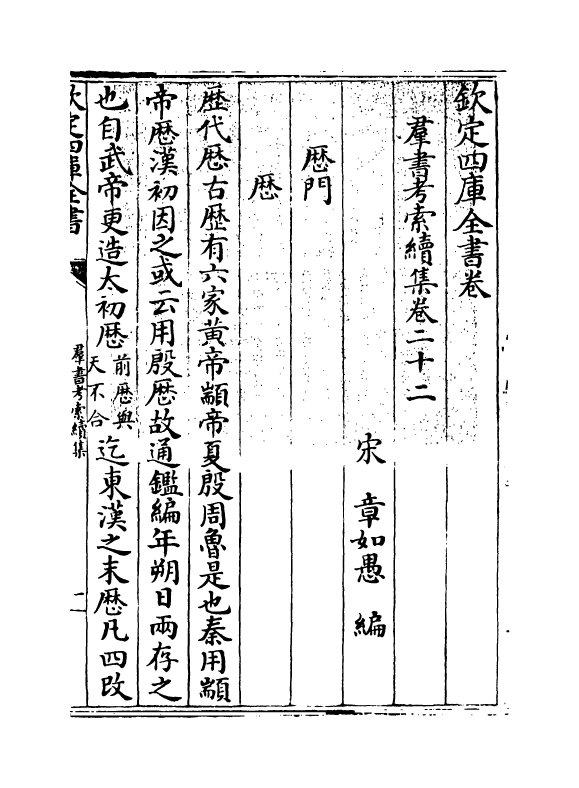 欽定四庫全書卷
羣書考索續集卷二十二
宋　章如愚　編
厯門
厯
歴代厯古厯有六家黄帝顓帝夏殷周魯是也秦用顓
帝厯漢初因之或云用殷厯故通鑑編年朔日兩存之
也自武帝更造太初厯前厯與天不合迄東漢之末厯凡四改
欽定四庫全書
羣書考索續集
二